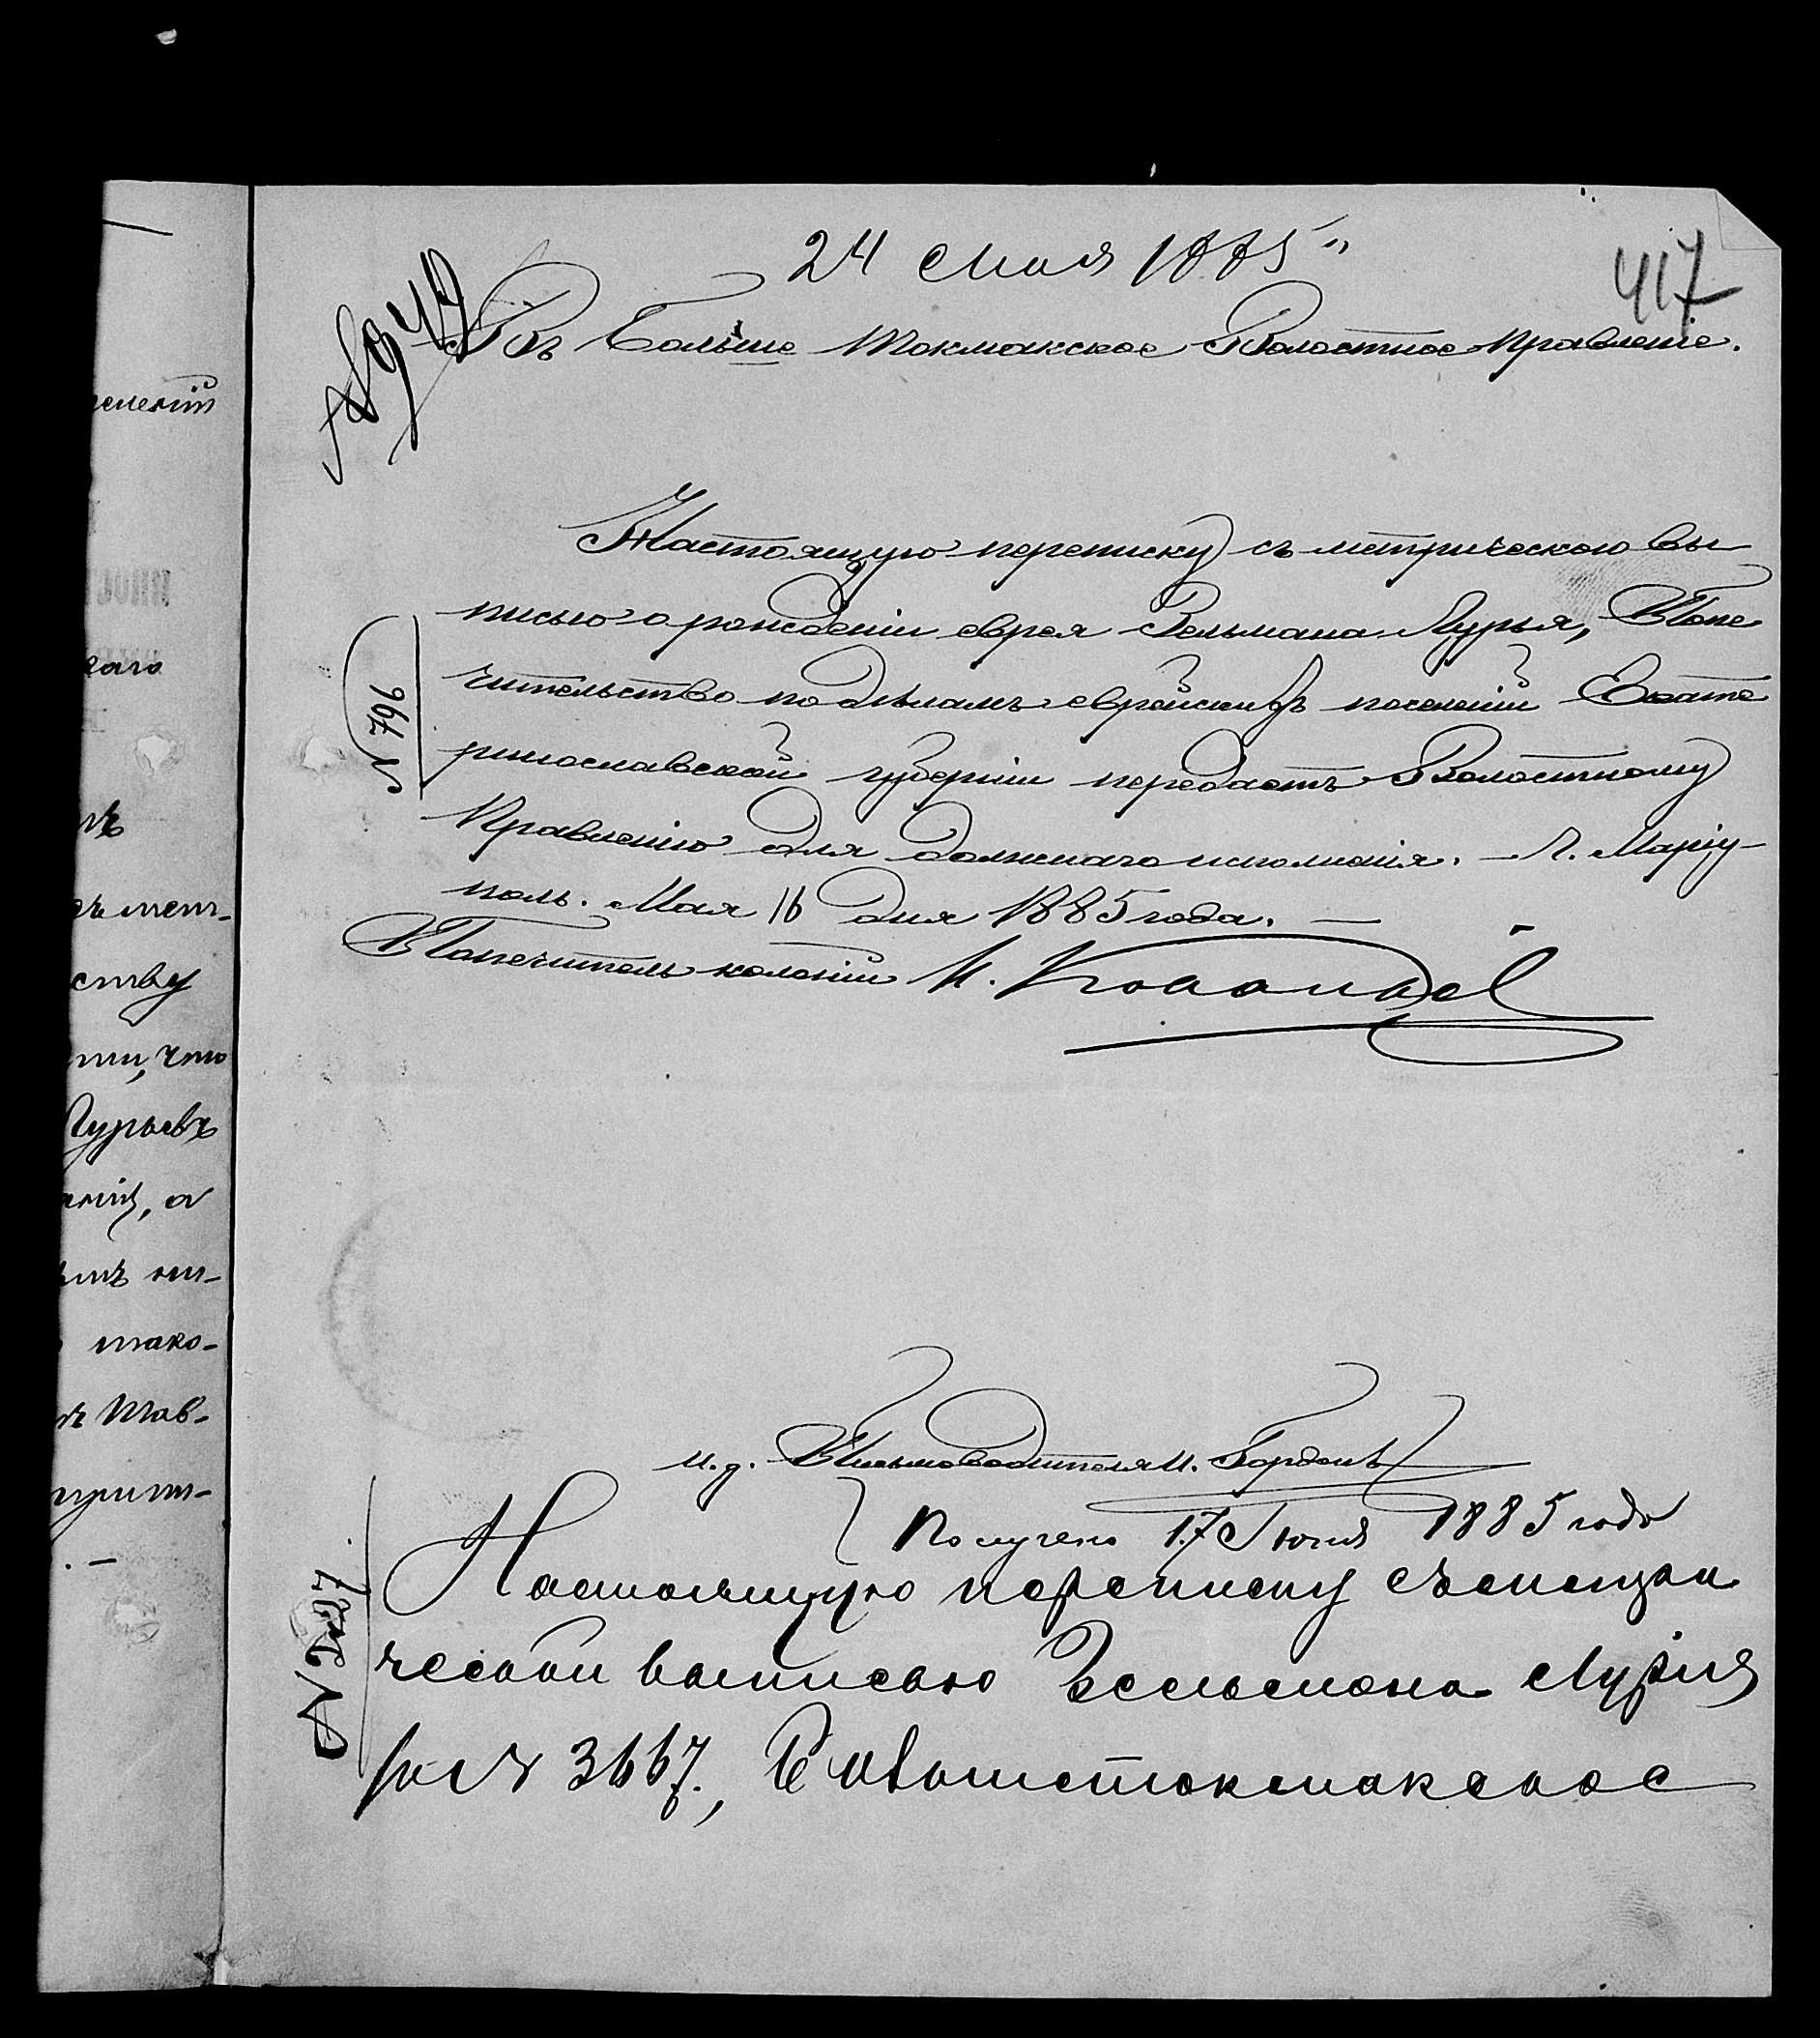 24 Мая 1885
417
№ 949
Въ Больше Токмакское Волостное Правленіе.
Настоящую переписку съ метрическою вы
писью о рожденіи еврея Зельмана Лурья, Попе
чительство по дѣламъ еврейскихъ поселеній Екате
ринославской губерніи передаетъ Волостному
Правленію для должнаго исполненія. — Г. Маріу-
поль. Мая 16 дня 1885 года. —
№ 796
Попечитель колоній И.
И. д. Письмоводителя И. Гордонъ
Получено 17 Іюня 1885 года
Настоящую переписку съ метри
ческой выписью Зельмана Лурія
за № 3667,
№ 3667
селеній
каго
ству
ти, что
Лурьевъ
, а
тако-
Тав-